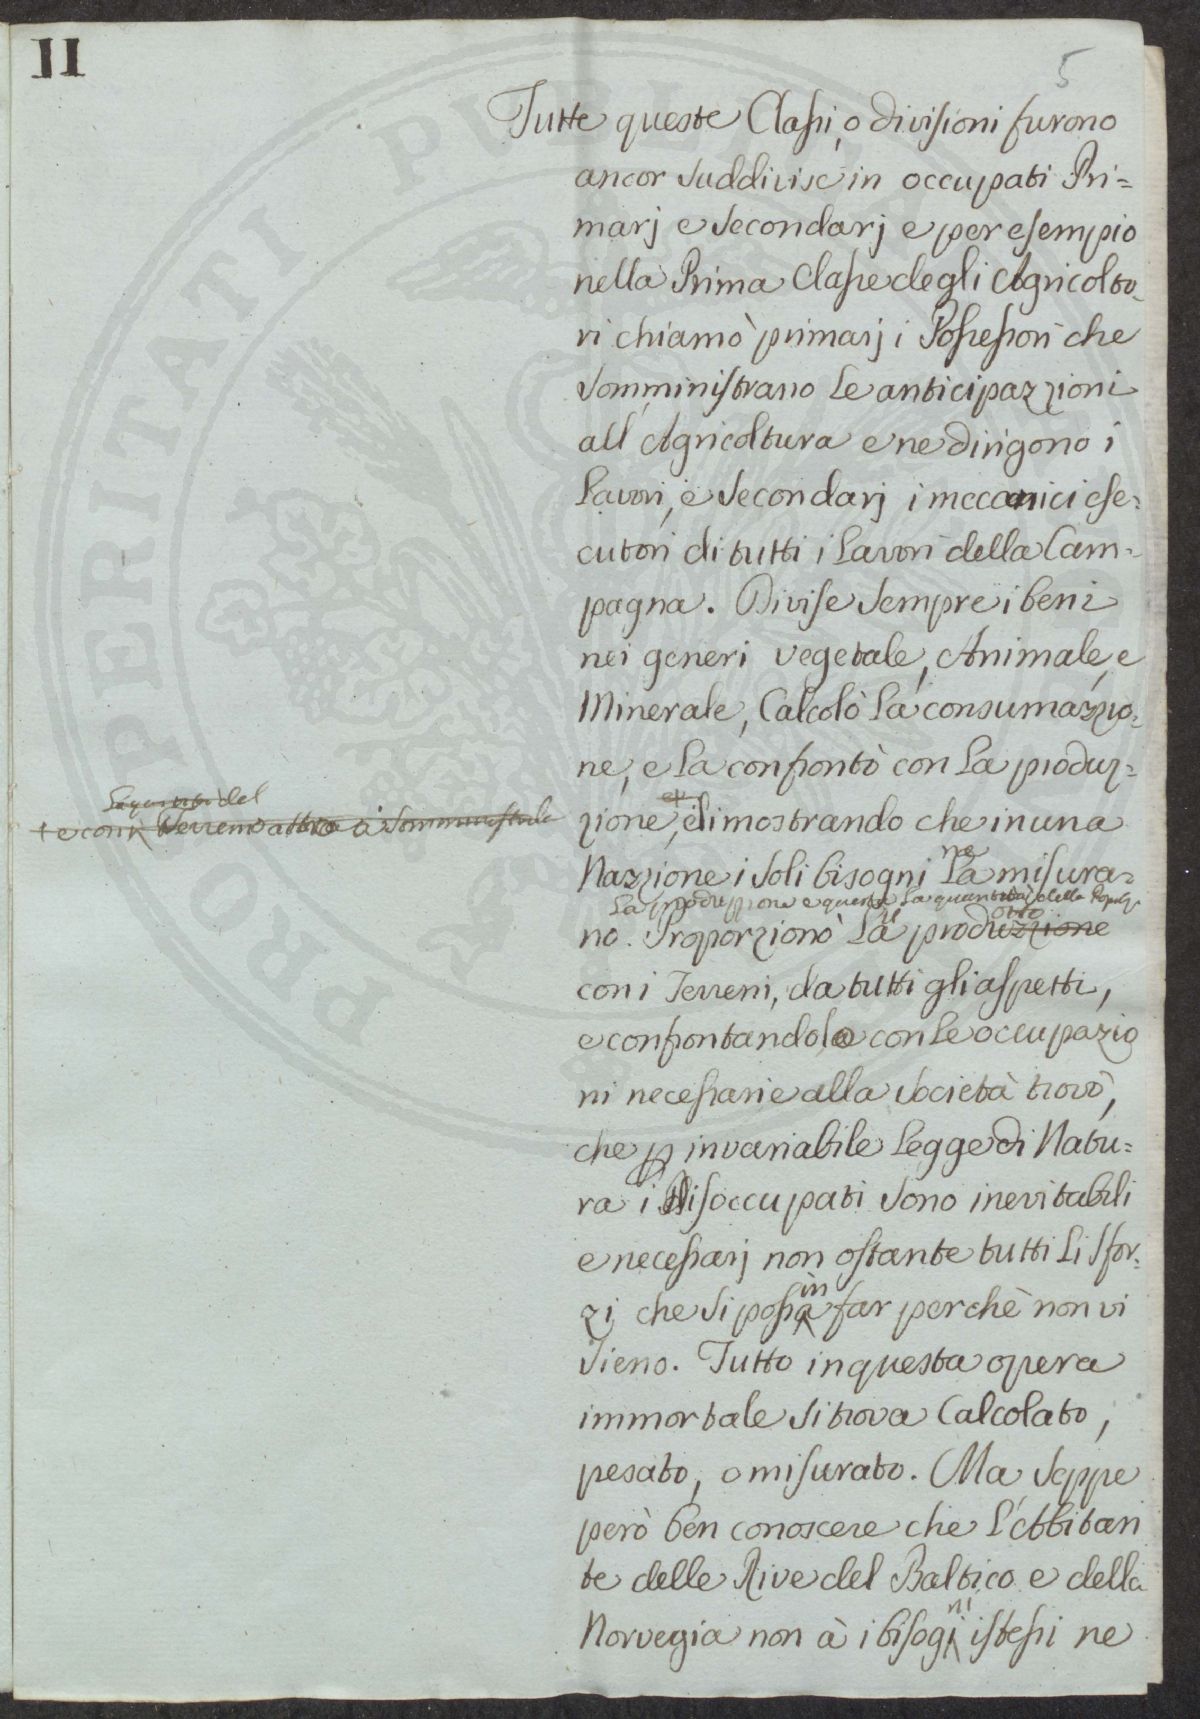 II
5
Tutte queste Classi, o divisioni furono
ancor suddivise in occupati Pri=
marj e secondarj e per esempio
nella Prima Classe degli Agricolto
ri chiamò primarj i Possessori che
somministrano le anticipazzioni
all'Agricoltura e ne dirigono i
lavori, e secondarj i meccanici ese=
cutori di tutti i lavori della Cam=
pagna. Divise sempre i beni
nei generi vegetale, Animale, e
Minerale, Calcolò la consumazzio=
ne, e la confrontò con la produz=
zione, dimostrando che in una
Nazzione i soli bisogni ne misura=
la produzzione e questa la quantità della Popolz.
no. Proporzionò la produzzione
con i Terreni, da tutti gli aspetti,
e confrontandola con le occupazio
ni necessarie alla società trovò,
che p invariabile legge di Natu=
ra i Disoccupati sono inevitabili
e necessarj non ostante tutti li sfor=
zi che si possin far perchè non vi
sieno. Tutto in questa opera
immortale si trova Calcolato,
pesato, o misurato. Ma seppe
però ben conoscere che l'Abbitan
te delle Rive del Baltico e della
Norvegia non à i bisogni istessi ne
la quantità del
+ e con i Terreno atto a somministrale
PROPERITATI PUBLICAE